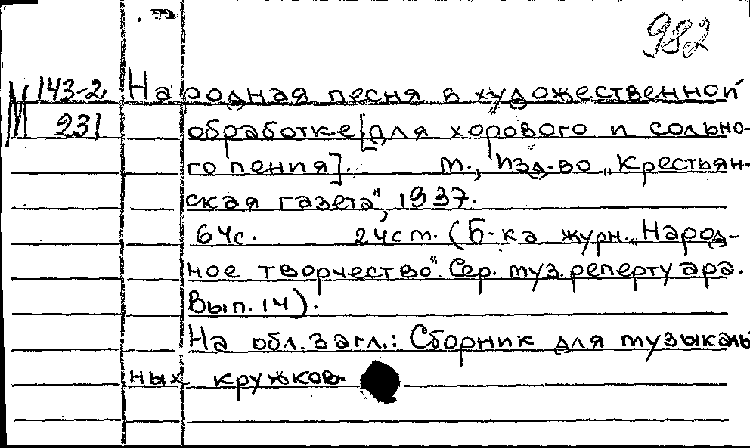 982
М 143-2 Народная песня в художественной
231 обработке [для хорового и сольно-
го пения]. М., Изд-во „Крестьян-
ская газета", 1937.
64с. 24см. (Б-ка журн. „Народ-
ное творчество". Сер. муз. репертуара.
Вып. 14).
На обл. загл.: Сборник для музыкаль
ных кружков.